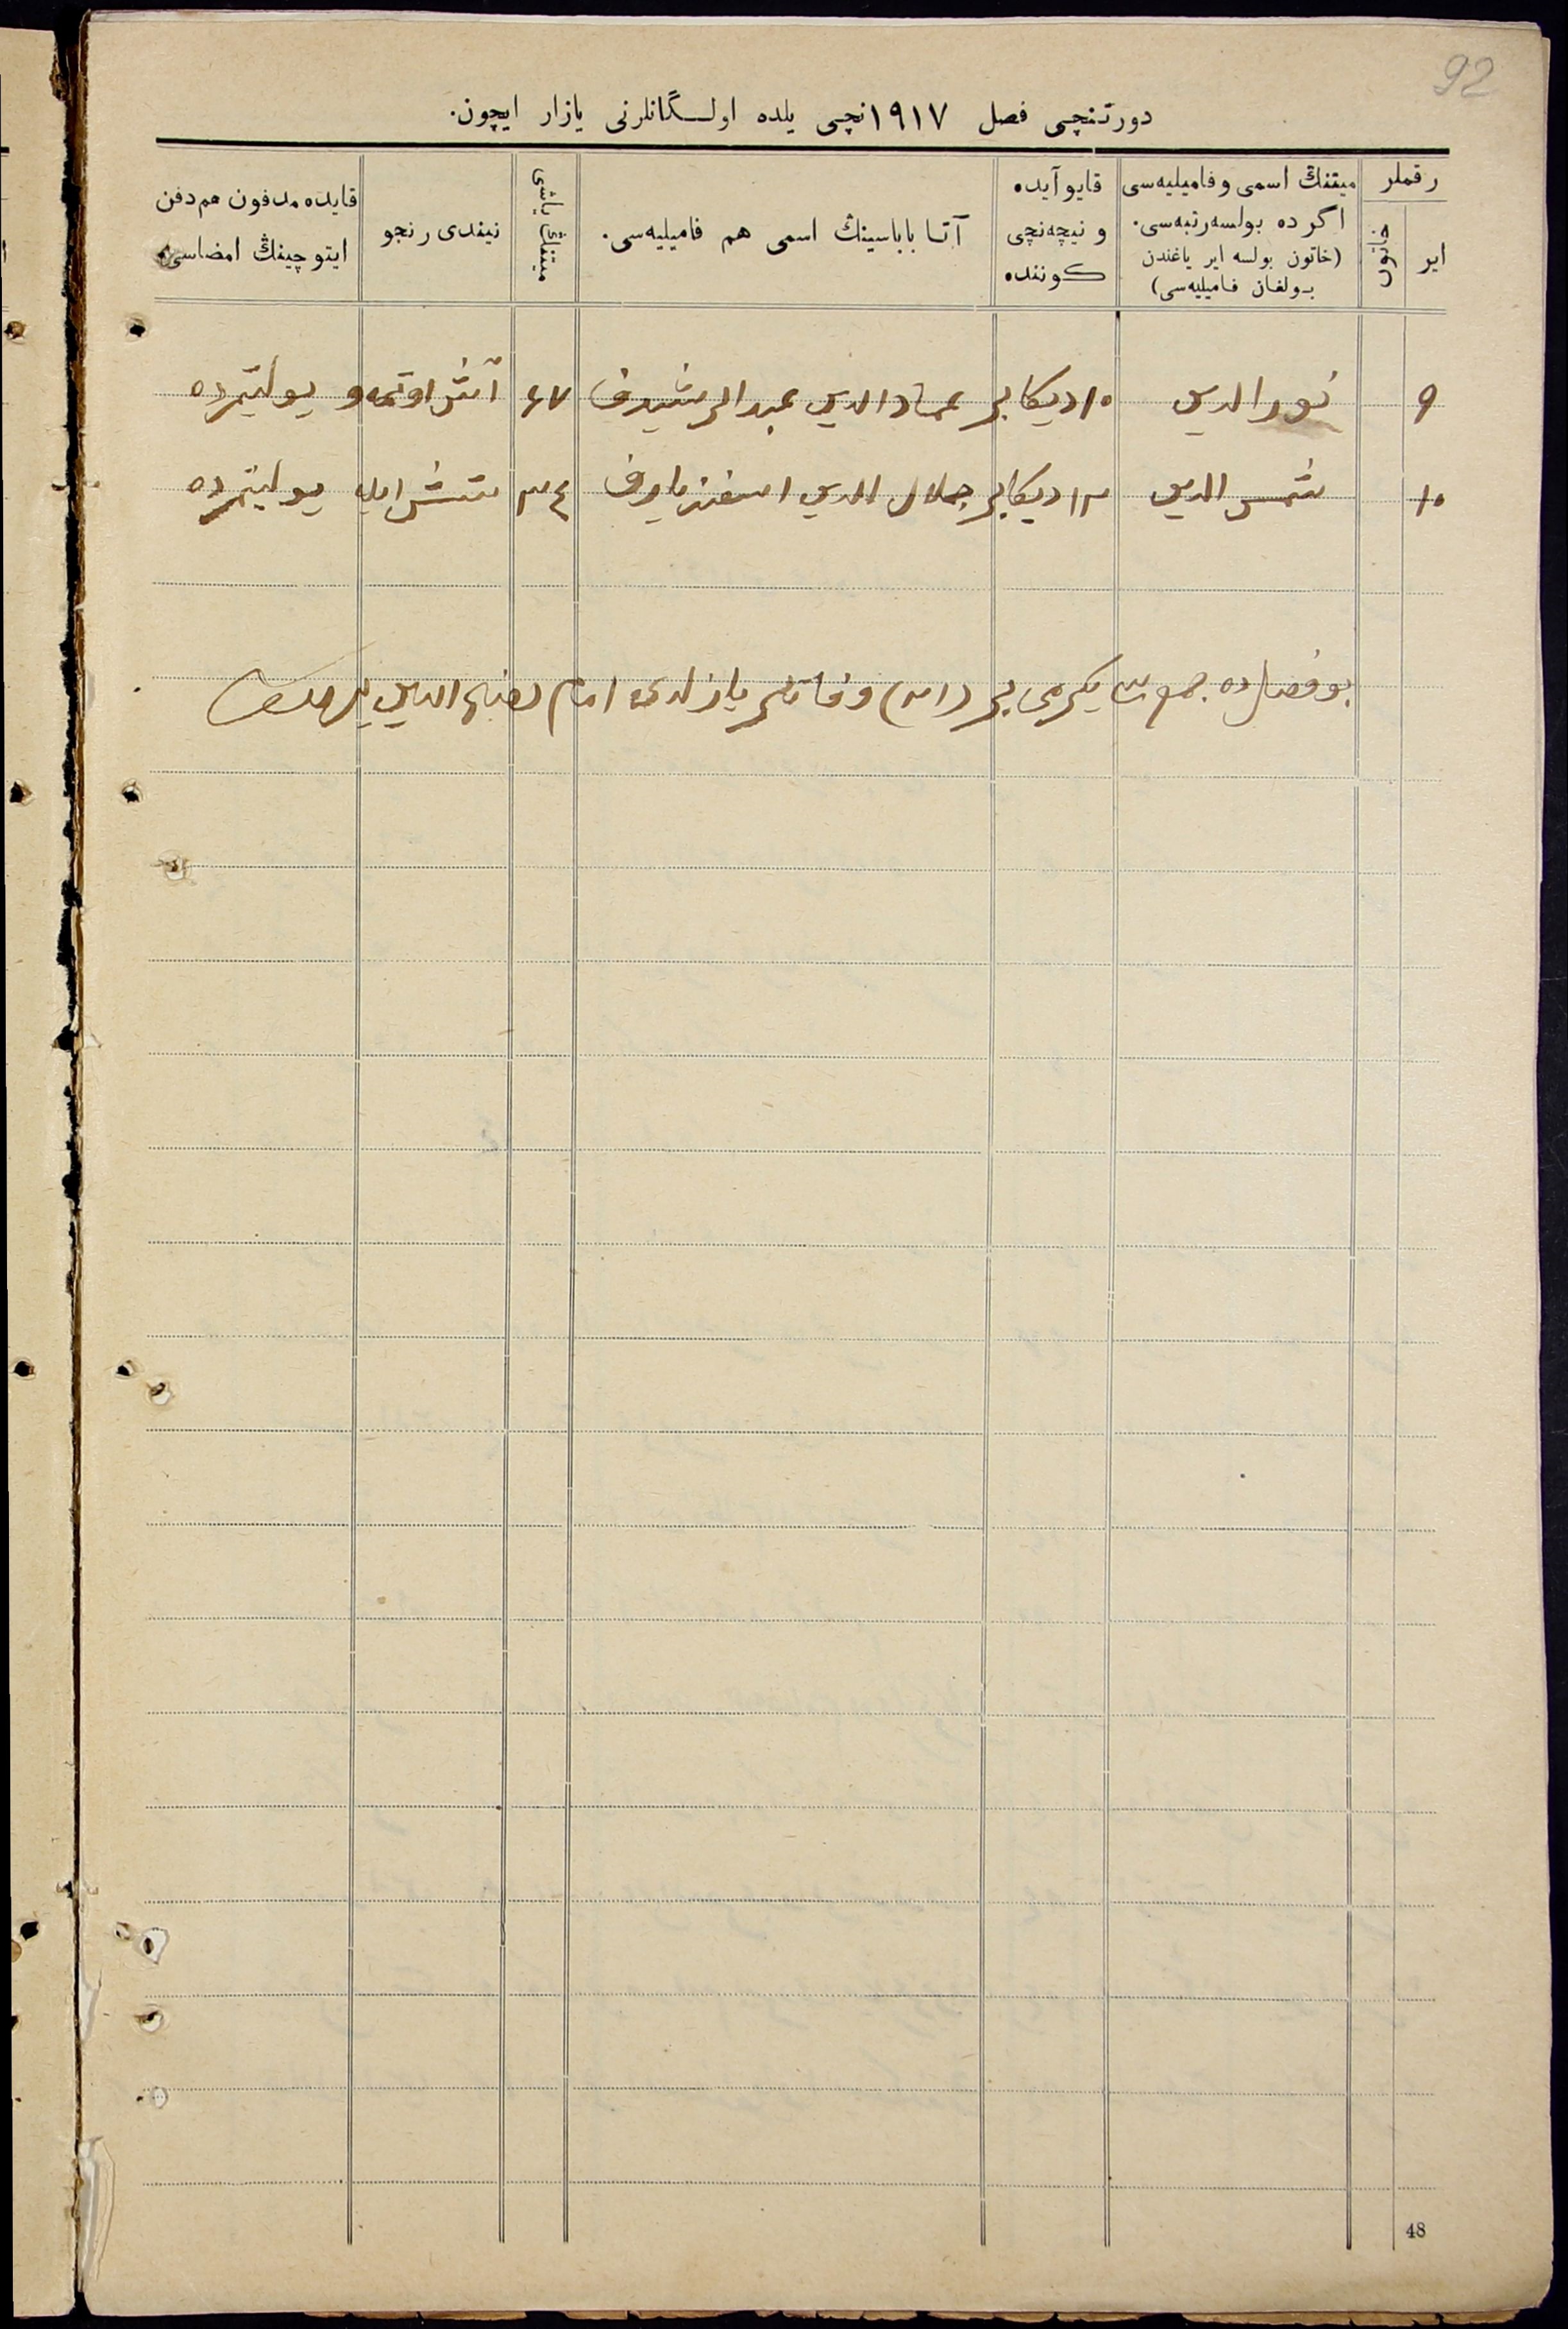 92
دورتنچی فصل ١٩١٧نچی یلده اولگانلرنی یازار ایچون.
رقملر
ایر
خاتون
میتنڭ اسمی و فامیلیه‌سی
اگر ده بولسه رتبه‌سی.
(خاتون بولسه ایر یاغندن
بولغان فامیلیه‌سی)
قایو آیده
و نیچه‌نچی
کوننده
آتا باباسینڭ اسمی هم فامیلیه‌سی.
میتنڭ یاشی
نیندی رنجو
قایده مدفون هم دفن
ایتوچینڭ امضاسی
٩ نورالدین ١٠ دیکابر عمادالدین عبدالرشیدف ٤٧ یولیتمرده
١٠ شمس الدین ١٢ دیکابر جلال الدین اسفندیاروف ٣٤ یولیتمرده
بو فصلده جمع سی یکرمی بر (٢١) وفاتلر یازلدی امام
48